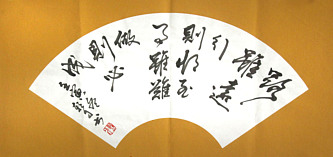 路
雖遠
行
則將至
事雖難
做
則必
成